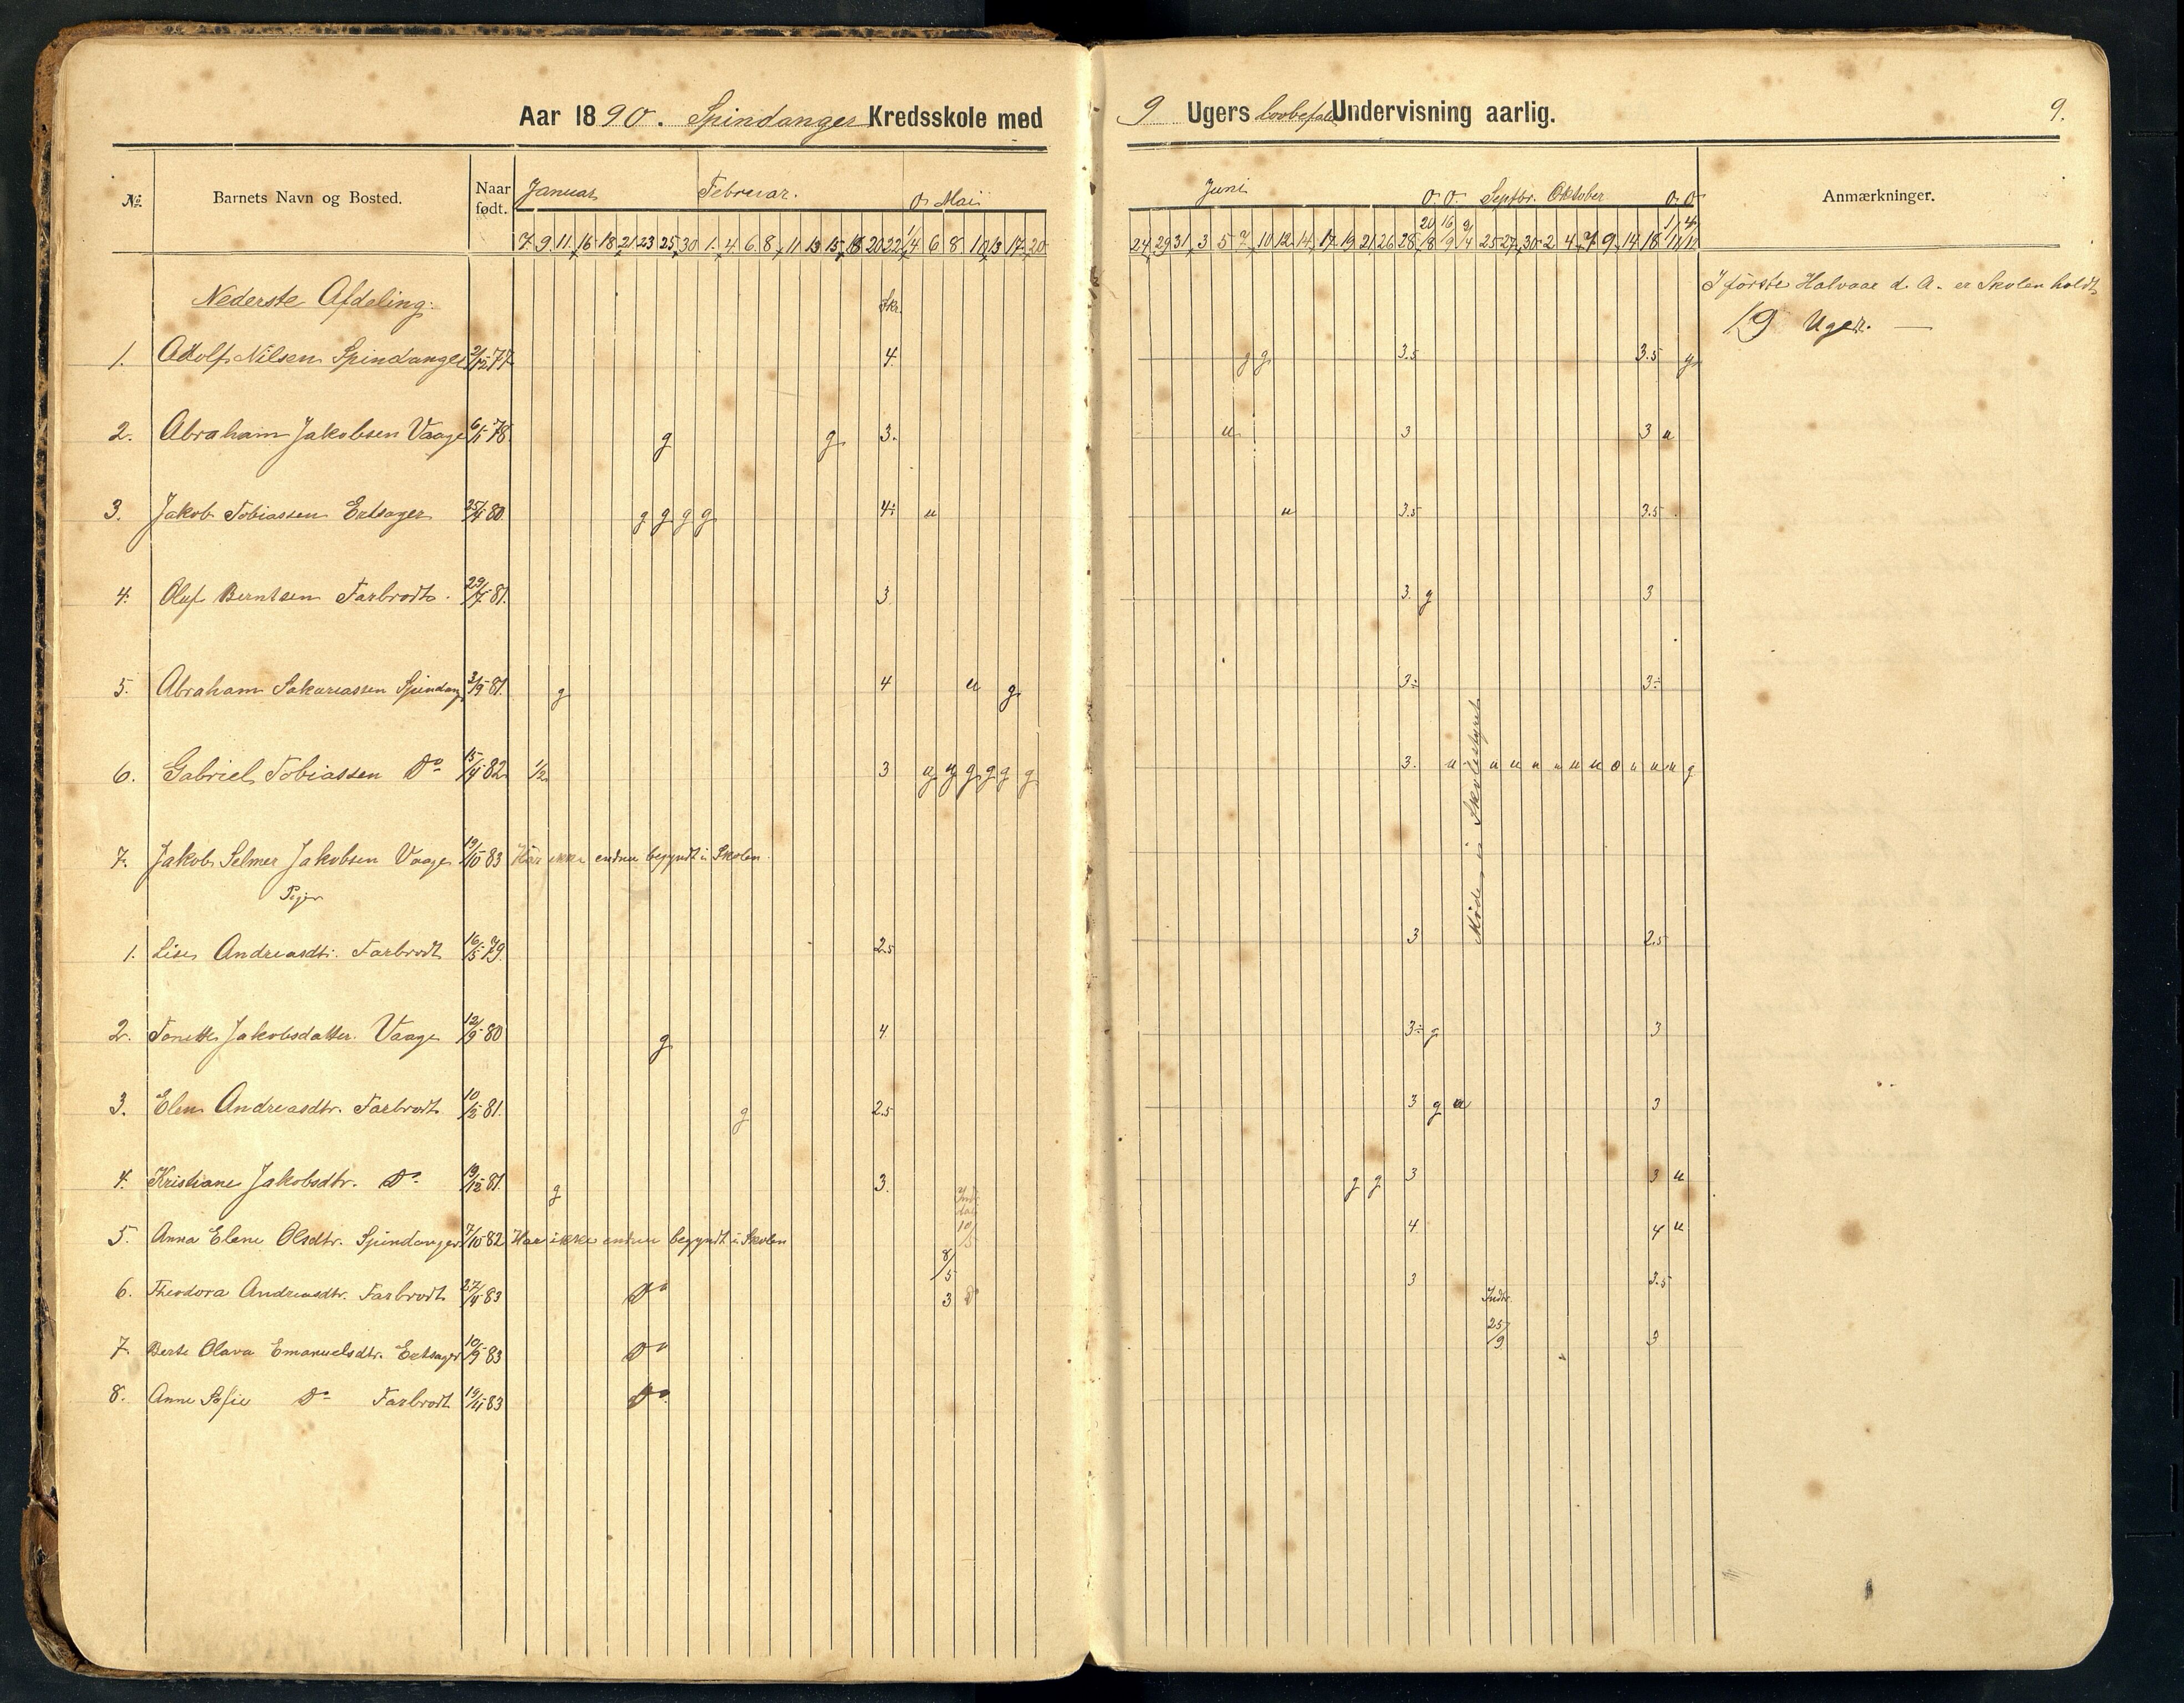 Aar 1890. Spindanger Kredsskole med 9 Ugers lovbefalet Undervisning aarlig. 9.
No. Barnets Navn og Bosted. Naar født. Januar Februar. O. Mai Juni O. O. Septbr. Oktober O. O. Anmærkninger.
7 9 11 16 18 21 23 25 30 1 4 6 8 11 13 15 18 20 22 1/4 6 8 10 13 17 20 24 29 31 3 5 7 10 12 14 17 19 21 26 28 20/8 16/9 9/4 25 27 30 2 4 7 9 14 18 1/11 4/12
Nederste Afdeling: Skr. I første Halvaar d. A. er Skolen holdt
19 Uger. —
1. Adolf Nilsen Spindanger 2/12 77 4. g g 3.5 3.5 g
2. Abraham Jakobsen Vaage 6/11 78 g g 3. u 3 3 u
3. Jakob Tobiassen Ertsager 25/4 80 g g g g 4÷ u u 3.5 3.5
4. Oluf Berntsen Tarbrodt. 29/7 81. 3 3. g 3
5. Abraham Sakariassen Spindang 3/9 81. g 4 u g 3÷ 3÷
6. Gabriel Tobiassen Do 15/4 82 1/2 3 g g g g g g 3. u u u u u u u o u u u g
Møde i Skolestyret
7. Jakob Selmer Jakobsen Vaage 19/10 83 Har ikke endnu begyndt i Skolen.
Piger
1. Lise Andreasdtr. Tarbrodt 16/5 79. 2.5 3 2.5
2. Tonette Jakobsdatter. Vaage 12/9 80 g 4 3÷ g 3
3. Elen Andreasdtr. Tarbrodt 10/2 81. g 2.5 3 g u 3
4. Kristiane Jakobsdtr. Do 19/12 81. g 3. g g 3 3 u
5. Anna Elene Olsdtr. Spindanger 7/10 82 Har ikke endnu begyndt i Skolen 10/5 4 4 u
6. Theodora Andreasdtr. Tarbrodt 27/4 83 Do 8/5 3 3 3.5
7. Berte Olava Emanuelsdtr. Ertsager 10/9 83 Do Indtr. 25/9 3
8. Anne Sofie Do Tarbrodt 19/11 83 Do